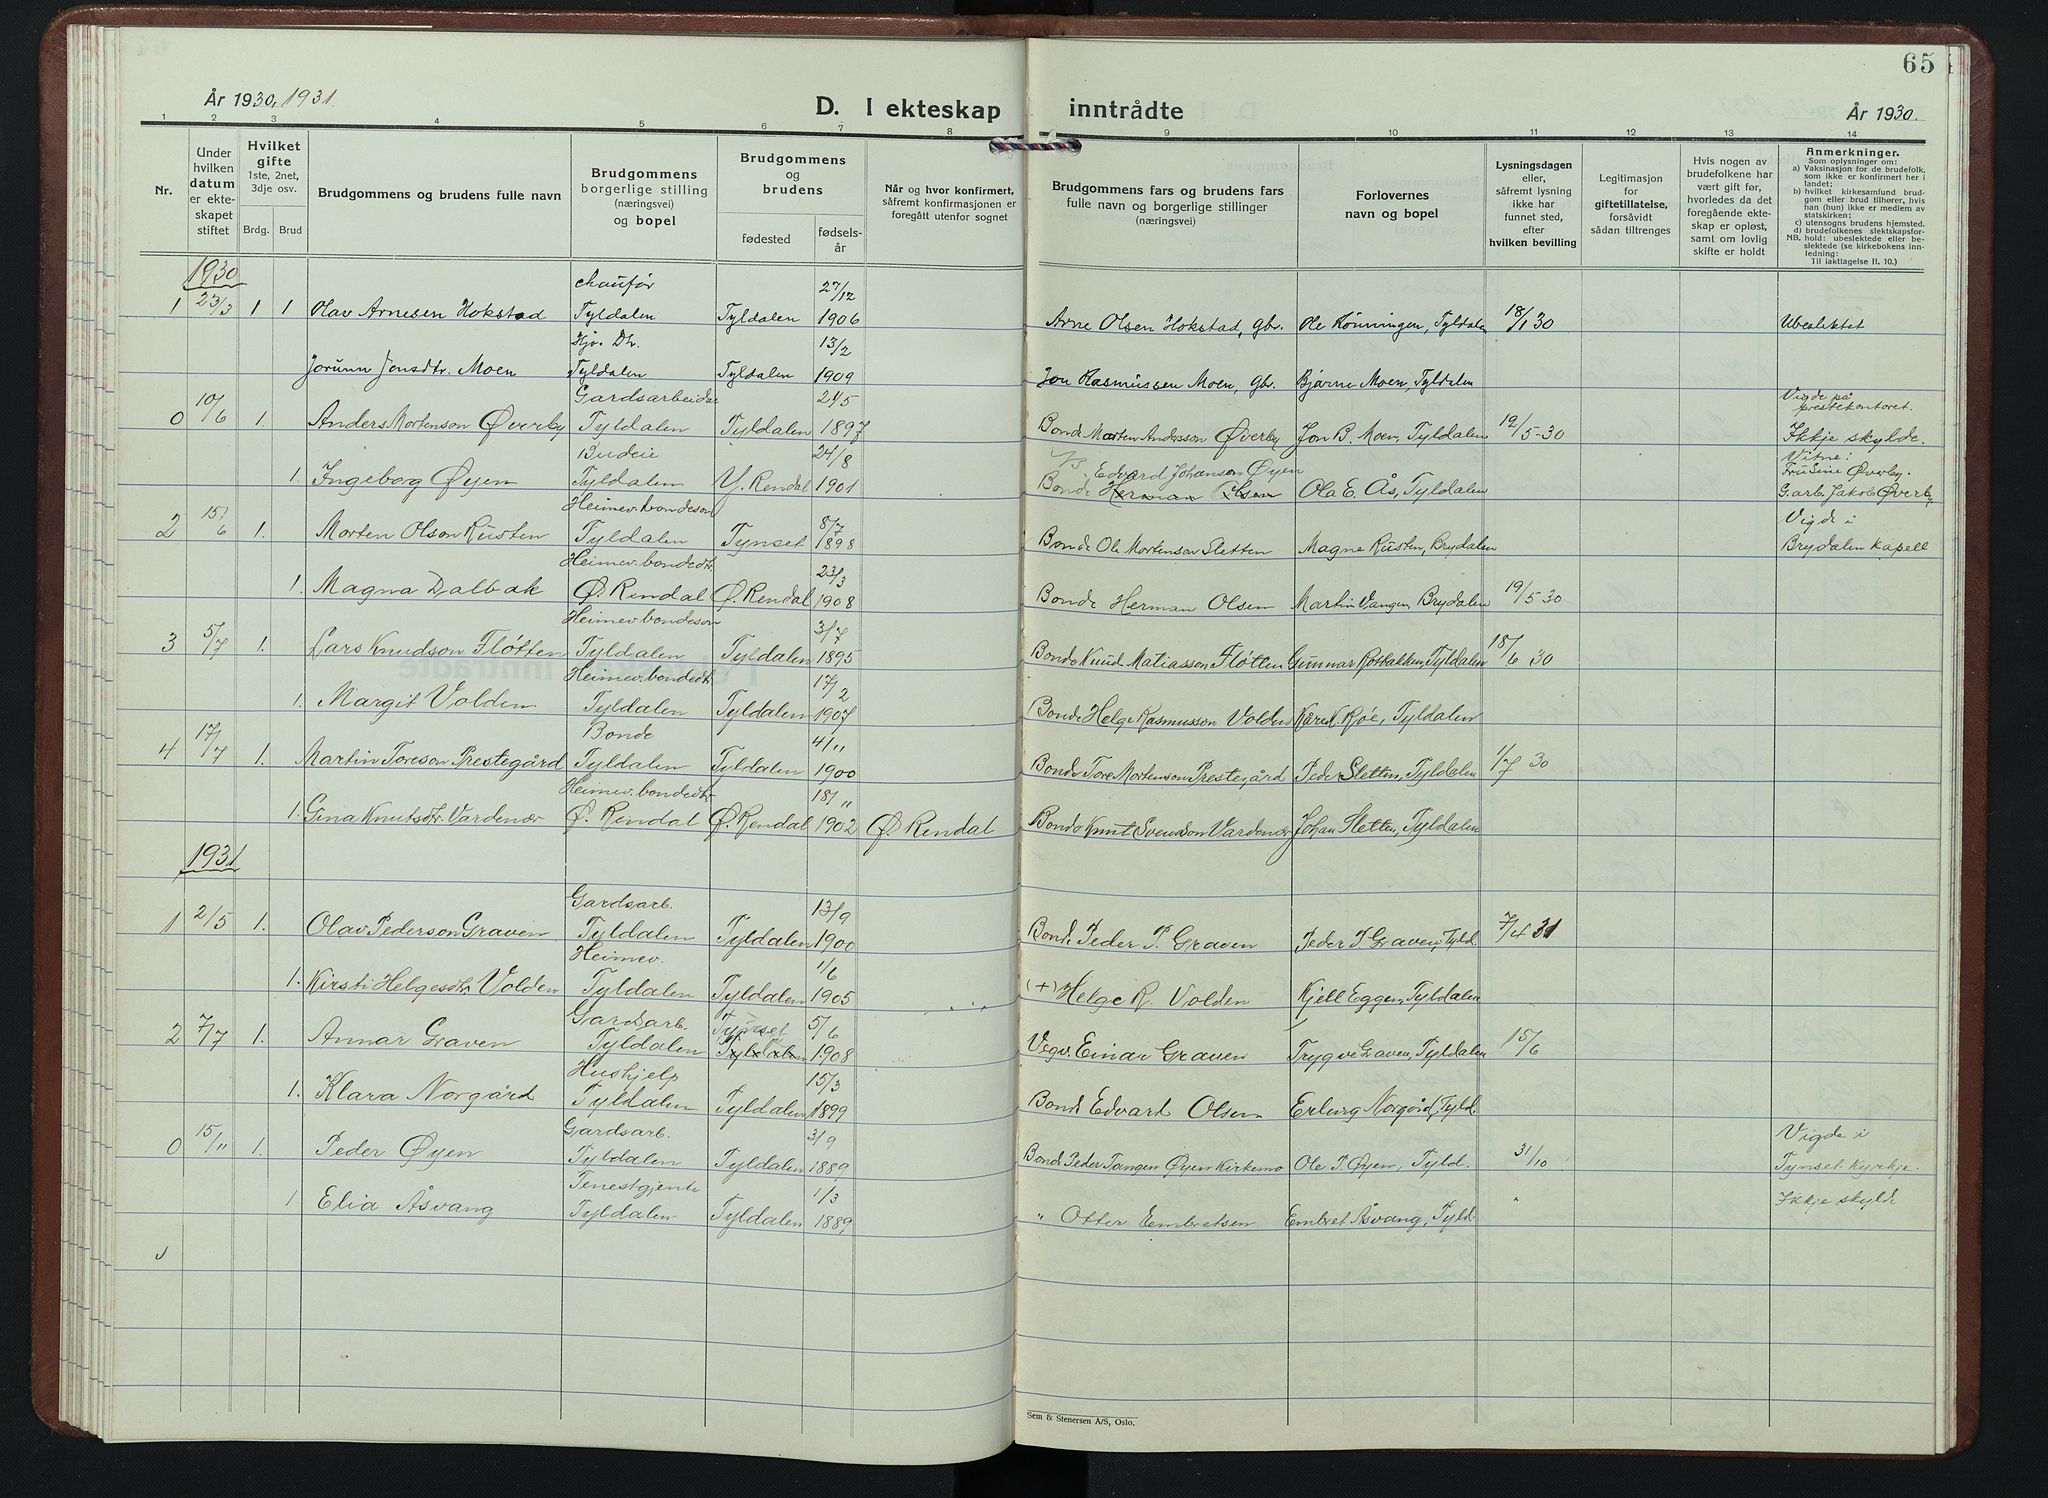 65
År 1930, 1931.
D. I ekteskap inntrådte
År 1930.
1 2 3 4 5 6 7 8 9 10 11 12 13 14
Nr.
Under hvilken datum er ekteskapet stiftet
Hvilket gifte 1ste, 2net, 3dje osv.
Brdg. Brud
Brudgommens og brudens fulle navn
Brudgommens borgerlige stilling (næringsvei) og bopel
Brudgommens og brudens
fødested
fødselsår
Når og hvor konfirmert, såfremt konfirmasjonen er foregått utenfor sognet
Brudgommens fars og brudens fars fulle navn og borgerlige stillinger (næringsvei)
Forlovernes navn og bopel
Lysningsdagen eller, såfremt lysning ikke har funnet sted, efter hvilken bevilling
Legitimasjon for giftetillatelse, forsåvidt sådan tiltrenges
Hvis nogen av brudefolkene har vært gift før, hvorledes da det foregående ekteskap er opløst, samt om lovlig skifte er holdt
Anmerkninger.
Som oplysninger om:
a) Vaksinasjon for de brudefolk. som ikke er konfirmert her i landet;
b) hvilket kirkesamfund brudgom eller brud tilhører, hvis han (hun) ikke er medlem av statskirken;
c) utensogns brudens hjemsted.
d) brudefolkenes slektskapsforhold: ubeslektede eller beslektede (se kirkebokens innledning:
NB. Til iakttagelse II. 10.)
1930
1 23/3 1 1 Olav Arnesen Hokstad chaufør Tyldalen Tyldalen 27/12 1906 Arne Olsen Hokstad, gbr. Ole Rønningen, Tyldalen 18/1 30 Ubeslektet
Jorunn Jonsdtr. Moen Hjv. Dtr. Tyldalen Tyldalen 13/2 1909 Jon Rasmussen Moen, gbr. Bjarne Moen, Tyldalen
0 10/6 1. Anders Mortenson Øverby Gardsarbeidar Tyldalen Tyldalen 21/5 1897 Bonde Morten Andersson Øverby Jon B. Moen, Tyldalen 12/5-30 Vigde på prestekontoret. Ikkje skylde.
1. Ingeborg Øyen Budeie Tyldalen Y. Rendal 24/8 1901 Bonde Edvard Johanson Øyen Herman Olsen Ola E. Ås, Tyldalen Vitne: Fru Sine Øverby. G.arb. Jakob Øverby
2 15/6 1. Morten Olson Rusten Heimev. bondeson Tyldalen Tynset 8/7 1898 Bonde Ole Mortenson Sletten Magne Rusten, Brydalen Vigde i Brydalen kapell
1. Magna Dalbak Heimev. bondedtr. Ø. Rendal Ø. Rendal 23/3 1908 Bonde Herman Olsen Martin Vangen, Brydalen 19/5 30
3 5/7 1. Lars Knudson Fløtten Heimev. bondeson Tyldalen Tyldalen 3/7 1895 Bonde Knud Matiasson Fløtten Gunnar Kotbakken, Tyldalen 18/6 30
1. Margit Volden Heimev. bondedtr. Tyldalen Tyldalen 17/2 1907 Bonde Helge Rasmusson Volden Kåre K. Røe, Tyldalen
4 17/7 1. Martin Toreson Prestegård Bonde Tyldalen Tyldalen 4/11 1900 Bonde Tore Mortenson Prestegård Peder Sletten, Tyldalen 1/7 30
1. Gina Knutsdtr. Vardenær Heimev. bondedtr. Ø. Rendal Ø. Rendal 18/11 1902 Ø. Rendal Bonde Knut Svendson Vardenær Johan Sletten, Tyldalen
1931
1 2/5 1. Olav Pederson Graven Gardsarb. Tyldalen Tyldalen 13/9 1900 Bonde Peder P. Graven Peder P Graven, Tyld. 7/4 31
1. Kirsti Helgesdtr. Volden Heimev. Tyldalen Tyldalen 1/6 1905 (+) Helge R. Volden Kjell Eggen, Tyldalen
2 7/7 1. Annar Graven Gardsarb. Tyldalen Tynset Tyldalen 5/6 1908 Vegv. Einar Graven Trygve Graven, Tyldalen 15/6
1. Klara Norgård Hushjelp Tyldalen Tyldalen 15/3 1899 Bonde Edvard Olsen Erling Norgård, Tyld.
0 15/11 1. Peder Øyen Gardsarb. Tyldalen Tyldalen 3/9 1889 Bonde Peder Tangen Øyen Kirkemo Ole P. Øyen, Tyld. 31/10 Vigde i Tynset Kyrkje.
1 Elia Åsvang Tenestgjente Tyldalen Tyldalen 1/3 1889 " Otter Embretsen Embret Åsvang, Tyld. " Ikkje skylde
Sem & Stenersen A/S, Oslo.